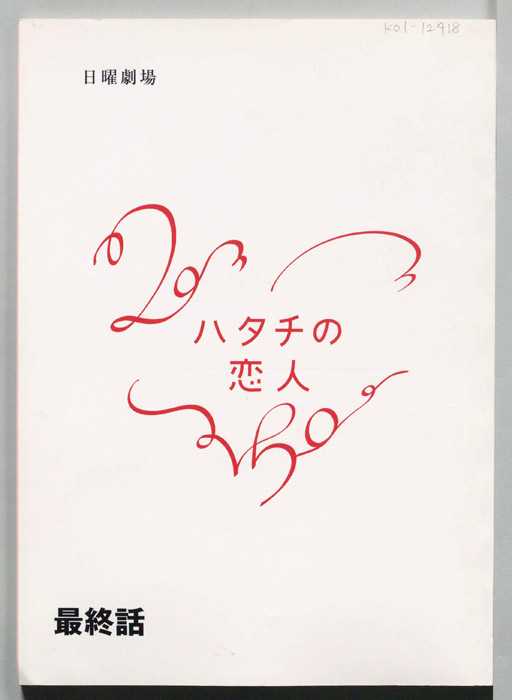 K01-12918
日曜劇場
ハタチの
恋人
最終話